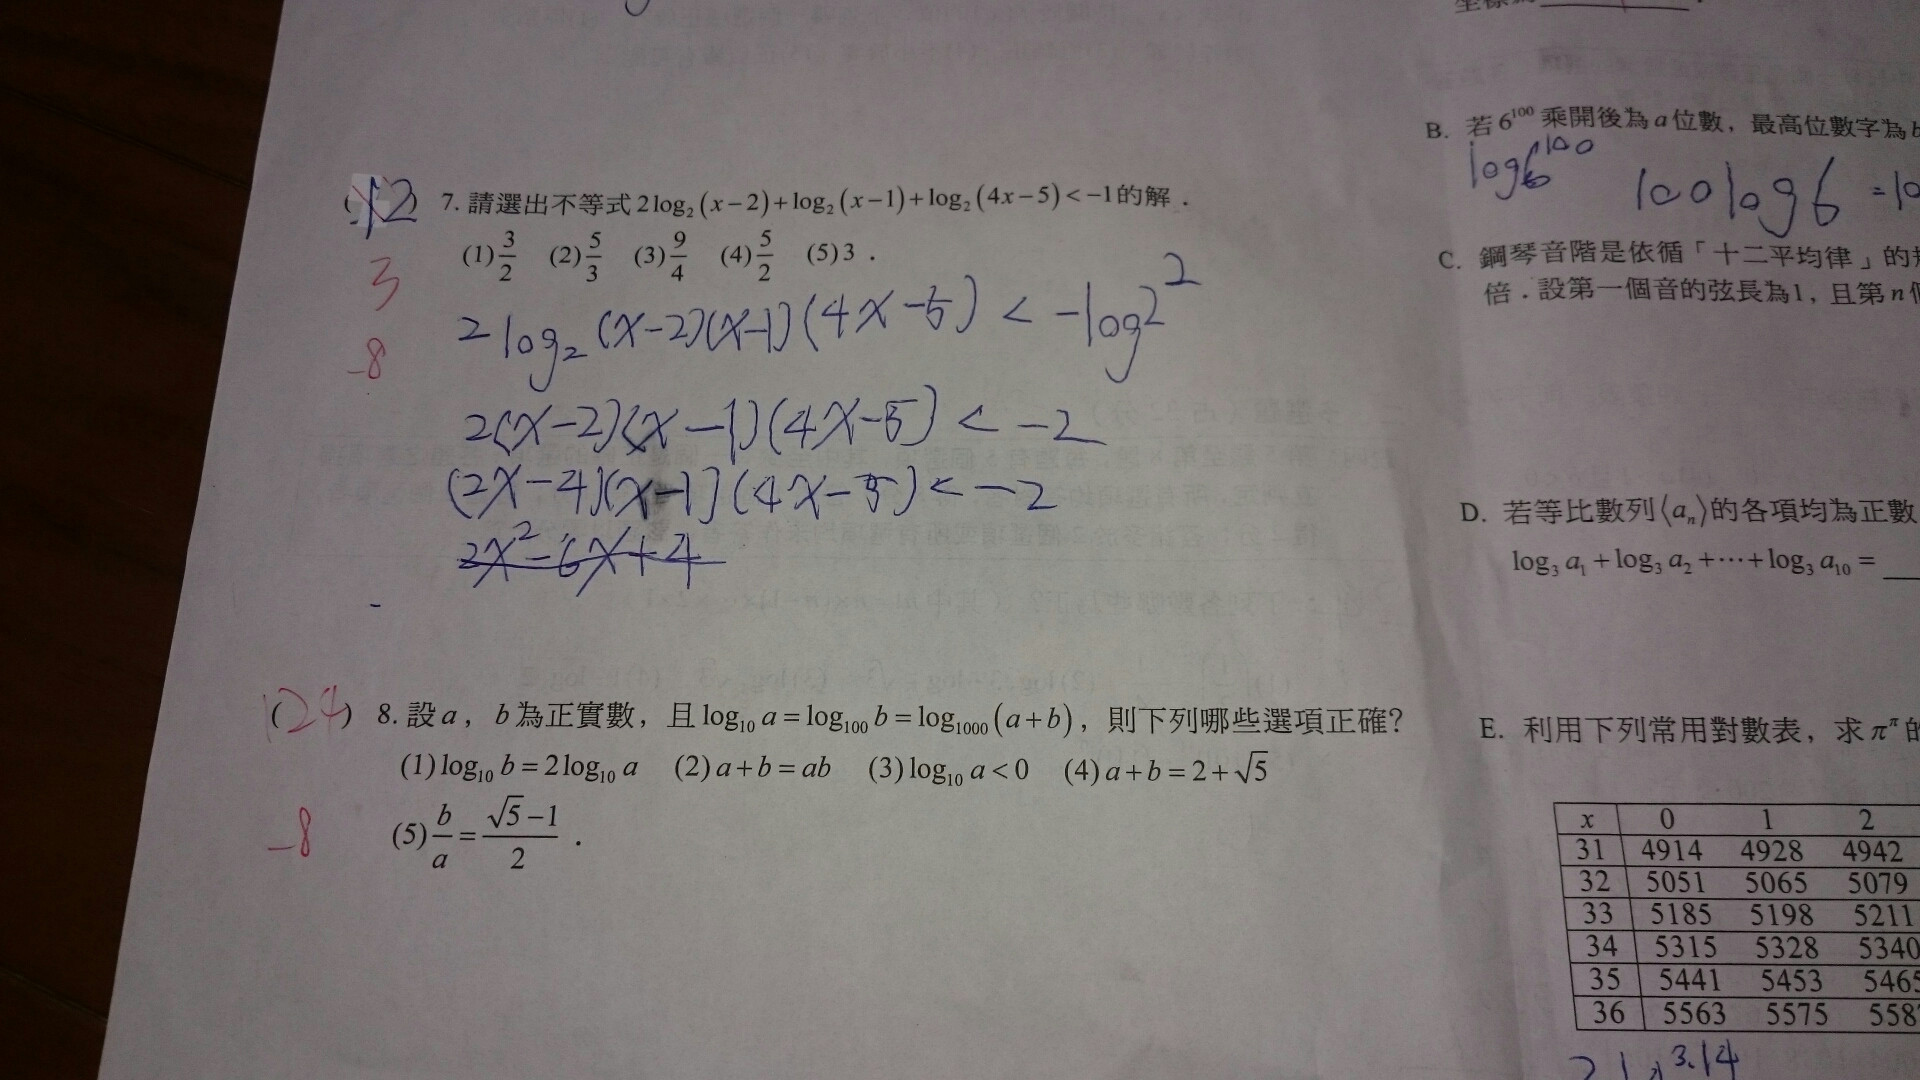 (12) 7. 請選出不等式 2log₂(x−2)+log₂(x−1)+log₂(4x−5)<−1的解．
(1)3/2 (2)5/3 (3)9/4 (4)5/2 (5)3．
3
−8
2log₂(x−2)(x−1)(4x−5) < −log2²
2(x−2)(x−1)(4x−5) < −2
(2x−4)(x−1)(4x−5) < −2
2x²−6x+4
(124) 8. 設a，b為正實數，且log₁₀ a=log₁₀₀ b=log₁₀₀₀(a+b)，則下列哪些選項正確?
(1)log₁₀ b=2log₁₀ a (2)a+b=ab (3)log₁₀ a<0 (4)a+b=2+√5
(5)b/a=(√5−1)/2．
−8
B. 若6¹⁰⁰乘開後為a位數，最高位數字為b
log6¹⁰⁰ 100log6 =10
C. 鋼琴音階是依循「十二平均律」的
倍．設第一個音的弦長為1，且第n個
D. 若等比數列⟨aₙ⟩的各項均為正數
log₃ a₁+log₃ a₂+⋯+log₃ a₁₀=
E. 利用下列常用對數表，求π^π的
x 0 1 2
31 4914 4928 4942
32 5051 5065 5079
33 5185 5198 5211
34 5315 5328 5340
35 5441 5453 5465
36 5563 5575 558
3.14